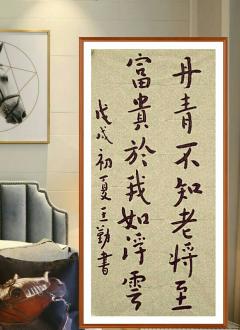 丹青不知老将至
富貴於我如浮雲
戊戌初夏王勤書